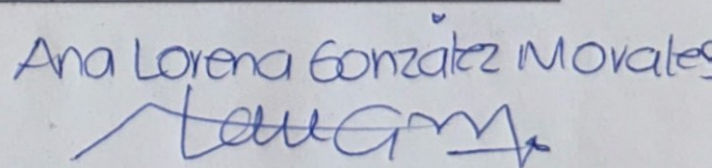 Ana Lorena González Morales